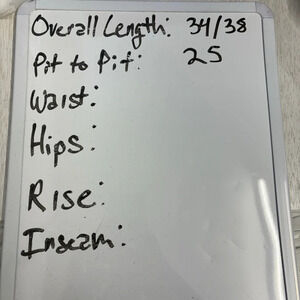 Overall Length: 34/38
Pit to Pit: 25
Waist:
Hips:
Rise:
Inseam: